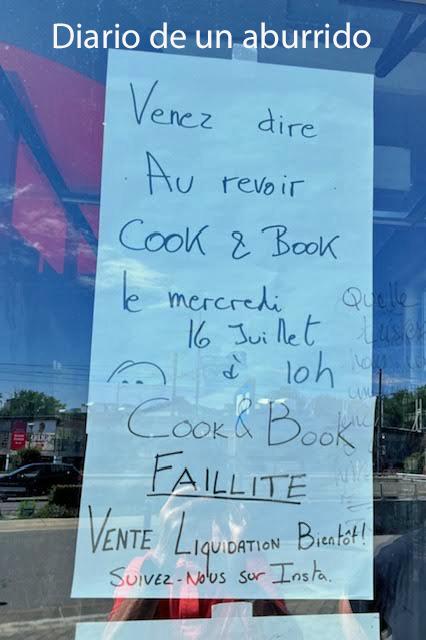 Diario de un aburrido
Venez dire
Au revoir
COOK & BOOK
le mercredi
16 Juillet
à 10h
COOK & BOOK
FAILLITE
VENTE LIQUIDATION Bientôt!
SUIVEZ-NOUS SUR INSTA.
Quelle